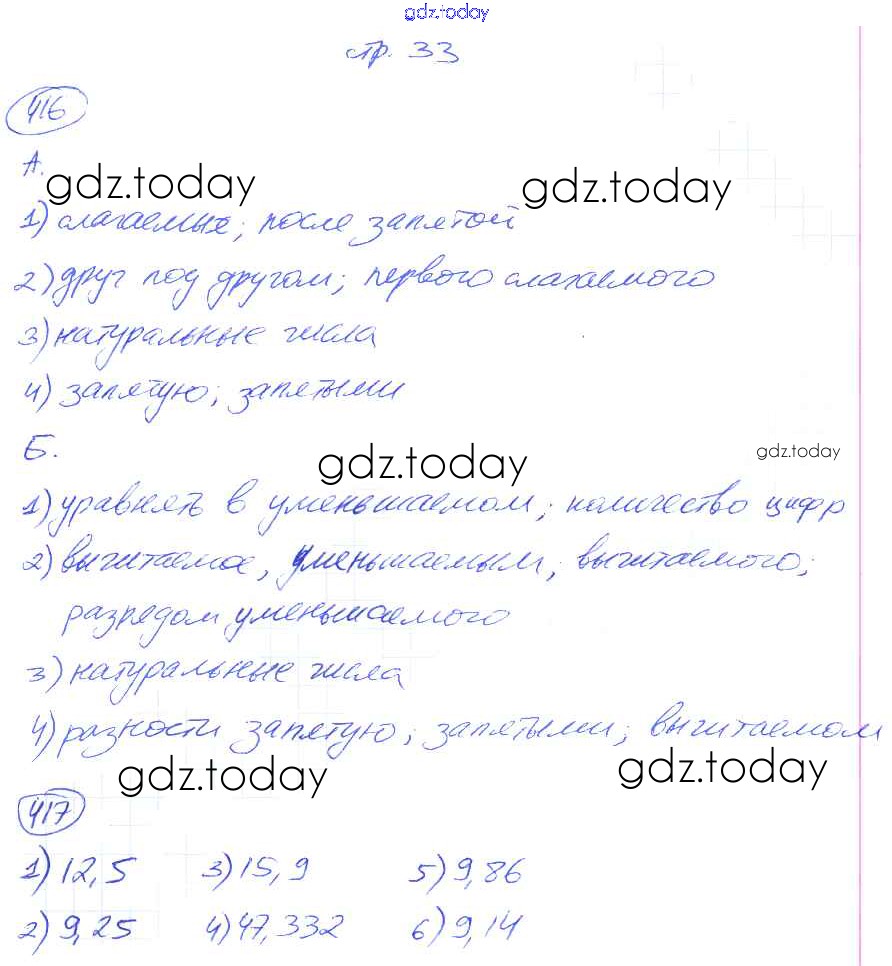 gdz.today
стр. 33
416
А.
gdz.today gdz.today
1) слагаемых; после запятой
2) друг под другом; первого слагаемого
3) натуральные числа
4) запятую; запятыми
Б.
gdz.today gdz.today
1) уравнять в уменьшаемом; количество цифр
2) вычитаемое, уменьшаемым; вычитаемого;
разрядом уменьшаемого
3) натуральные числа
4) разности запятую; запятыми; вычитаемом
gdz.today gdz.today
417
1) 12,5 3) 15,9 5) 9,86
2) 9,25 4) 47,332 6) 9,14